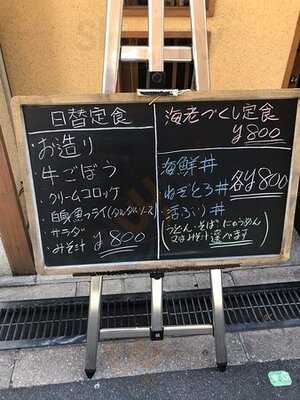 日替定食
・お造り
・牛ごぼう
・クリームコロッケ
・白身魚フライ(タルタルソース)
・サラダ
・みそ汁 ¥800
海老づくし定食
¥800
海鮮丼
ねぎとろ丼 各¥800
活ぶり丼
(うどん・そば・にゅうめん
又はみそ汁選べます)